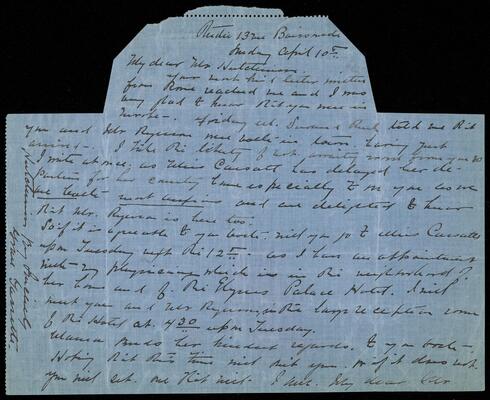 Studio 13 rue Boissonade
Friday April 10th
My dear Mr Hutchinson.
Your most kind letter written
from Rome reached me and I was
very glad to know that you were in
Europe. Today M. Durand Ruel told me that
you and Mr Ryerson were both in town having just
arrived. I take the liberty of not awaiting word from you so
I write at once, as Miss Cassatt has delayed her de-
parture for her country home especially to see you as we
are both most anxious and are delighted to know
that Mr. Ryerson is here too.
So if it is agreeable to you both will you go to Miss Cassatt's
upon Tuesday next the 12th as I have an appointment
with my physician which is in the neighborhood of
her home and of the Elysées Palace Hotel. I will
meet you and Mr Ryerson in the large reception room
of the Hotel at 4 30 upon Tuesday.
sends her kindest regards to you both
Hoping that this time will suit you, or if it does not,
you will set one that will. I am, My dear Mr
Hutchinson